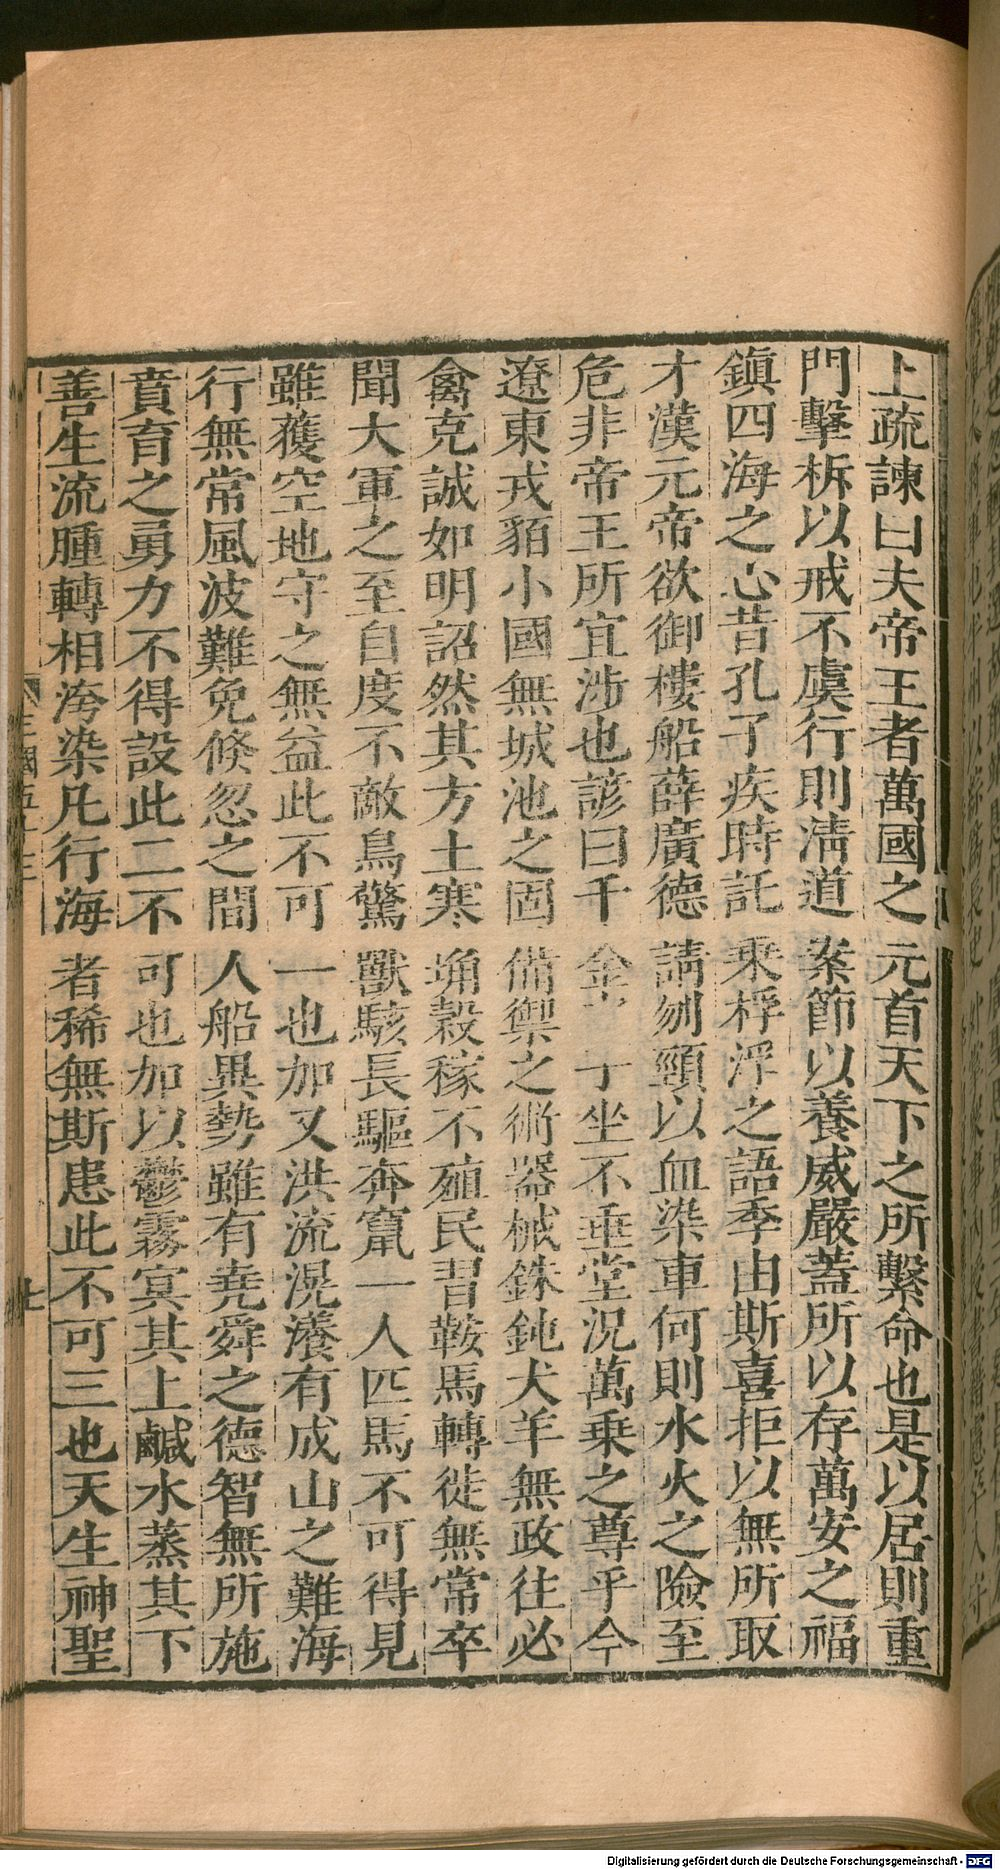 上疏諫曰夫帝王者萬國之元首天下之所繫命也是以居則重
門擊柝以戒不虞行則清道案節以養威嚴蓋所以存萬安之福
鎮四海之心昔孔子疾時託乘桴浮之語季由斯喜拒以無所取
才漢元帝欲御樓船薛廣德請刎頸以血染車何則水火之險至
危非帝王所宜涉也諺曰千金 子坐不垂堂況萬乘之尊乎今
遼東戎貊小國無城池之固備禦之術器械銖鈍犬羊無政往必
禽克誠如明詔然其方土寒埆穀稼不殖民習鞍馬轉徙無常卒
聞大軍之至自度不敵鳥驚獸駭長驅奔竄一人匹馬不可得見
雖獲空地守之無益此不可一也加又洪流滉瀁有成山之難海
行無常風波難免倐忽之間人船異勢雖有堯舜之德智無所施
賁育之勇力不得設此二不可也加以鬱霧㝠其上鹹水蒸其下
善生流腫轉相洿染凡行海者稀無斯患此不可三也天生神聖
三國五十三
七
Digitalisierung gefördert durch die Deutsche Forschungsgemeinschaft - DFG